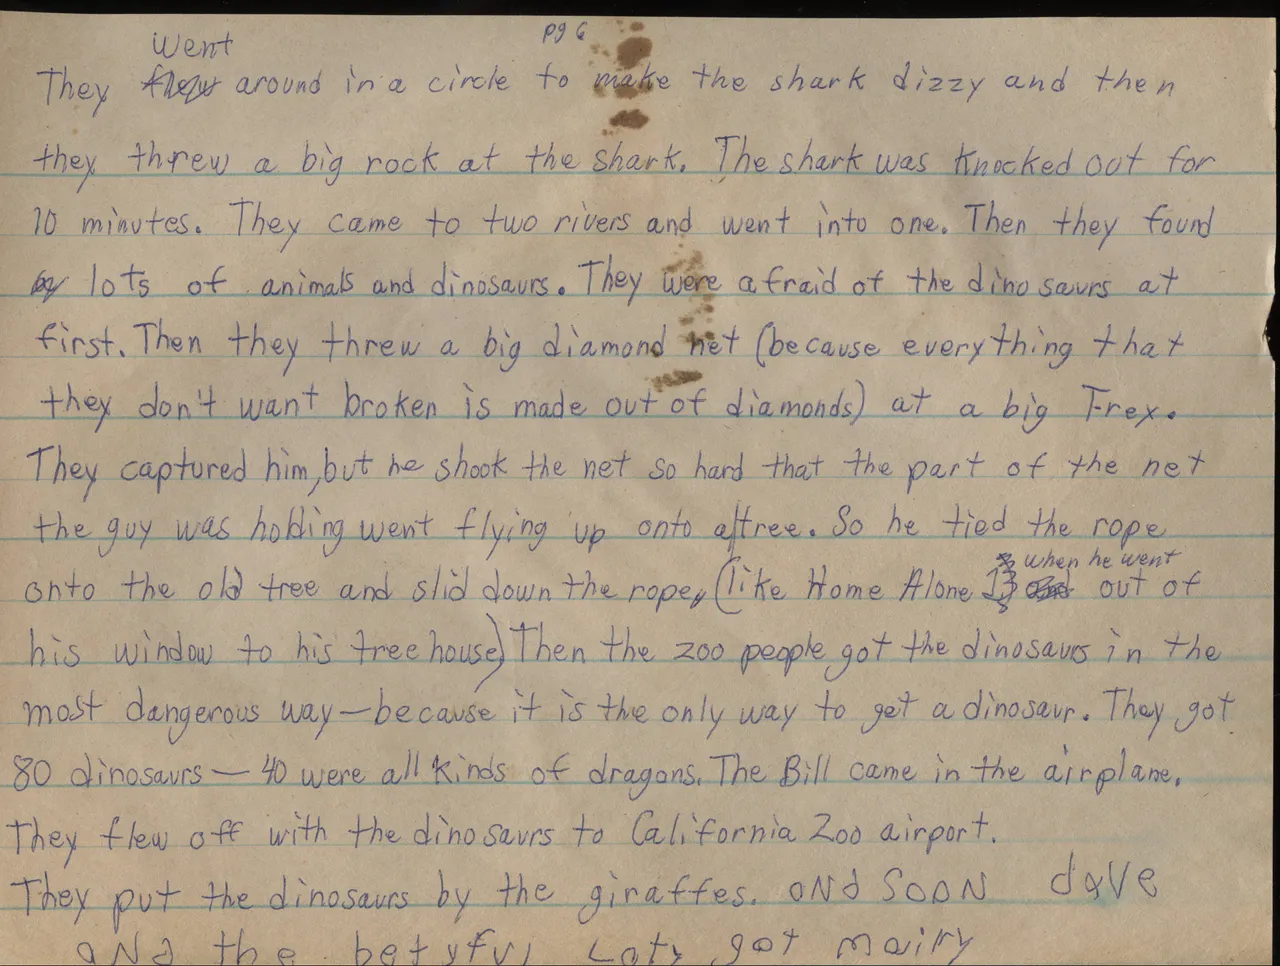 pg 6
went
They flew around in a circle to make the shark dizzy and then
they threw a big rock at the shark. The shark was knocked out for
10 minutes. They came to two rivers and went into one. Then they found
lots of animals and dinosaurs. They were afraid of the dinosaurs at
first. Then they threw a big diamond net (because everything that
they don't want broken is made out of diamonds) at a big T-rex.
They captured him, but he shook the net so hard that the part of the net
the guy was holding went flying up onto a tree. So he tied the rope
when he went
onto the old tree and slid down the rope, (like Home Alone out of
his window to his tree house) Then the zoo people got the dinosaurs in the
most dangerous way—because it is the only way to get a dinosaur. They got
80 dinosaurs—40 were all kinds of dragons. The Bill came in the airplane.
They flew off with the dinosaurs to California Zoo airport.
They put the dinosaurs by the giraffes. aNd SOON dave
aNd the betyful Laty got mairy